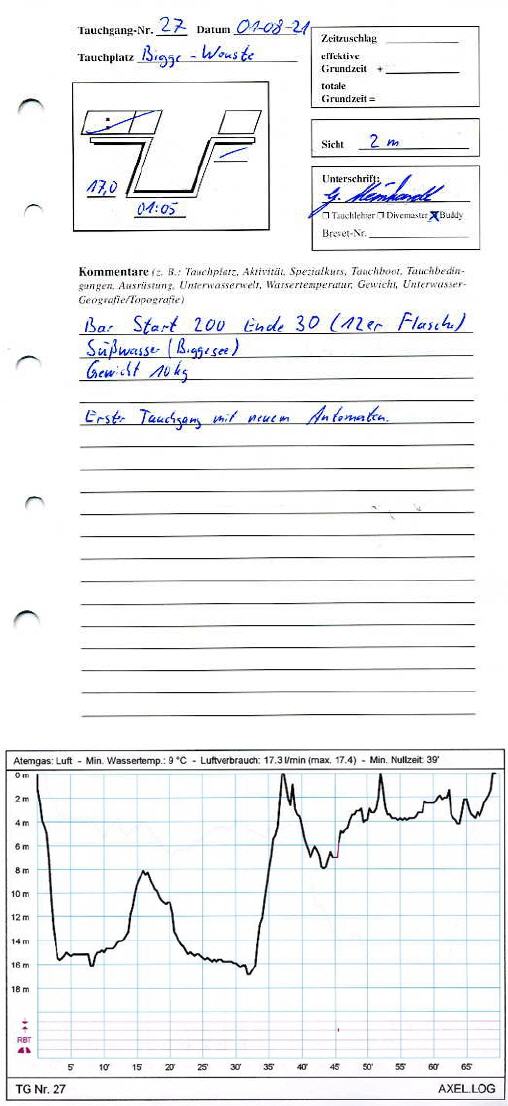 Tauchgang-Nr. 27 Datum 01-08-21
Tauchplatz Bigge - Wouste
Zeitzuschlag
effektive
Grundzeit +
totale
Grundzeit =
Sicht 2 m
17,0
01:05
Unterschrift:
Tauchlehrer Divemaster Buddy
Brevet-Nr.
Kommentare (z. B.: Tauchplatz, Aktivität, Spezialkurs, Tauchboot, Tauchbedin-
gungen, Ausrüstung, Unterwasserwelt, Wassertemperatur, Gewicht, Unterwasser-
Geografie/Topografie)
Bar Start 200 Ende 30 (12er Flasche)
Süßwasser (Biggesee)
Gewicht 10 kg
Erster Tauchgang mit neuem Automaten.
Atemgas: Luft - Min. Wassertemp.: 9 °C - Luftverbrauch: 17.3 l/min (max. 17.4) - Min. Nullzeit: 39'
0 m
2 m
4 m
6 m
8 m
10 m
12 m
14 m
16 m
18 m
RBT
5' 10' 15' 20' 25' 30' 35' 40' 45' 50' 55' 60' 65'
TG Nr. 27 AXEL.LOG